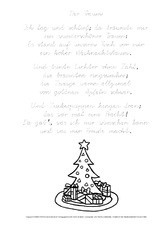 Der Traum
Ich lag und schlief; da träumte mir
ein wunderschöner Traum:
Es stand auf unserm Tisch vor mir
ein hoher Weihnachtsbaum.
Und bunte Lichter ohne Zahl,
die brannten ringsumher;
die Zweige waren allzumal
von goldnen Äpfeln schwer.
Und Zuckerpuppen hingen dran;
das war mal eine Pracht!
Da gab's, was ich nur wünschen kann
und was mir Freude macht.